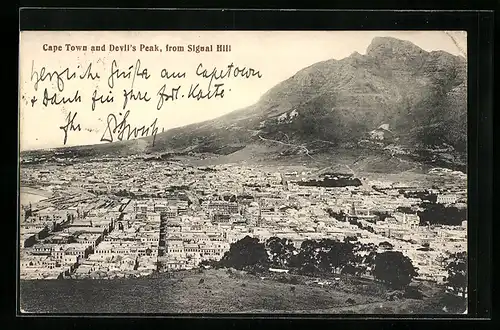 Cape Town and Devil's Peak, from Signal Hill
herzliche Grüße aus Capetown
+ Dank für Ihre Karte
Ihr